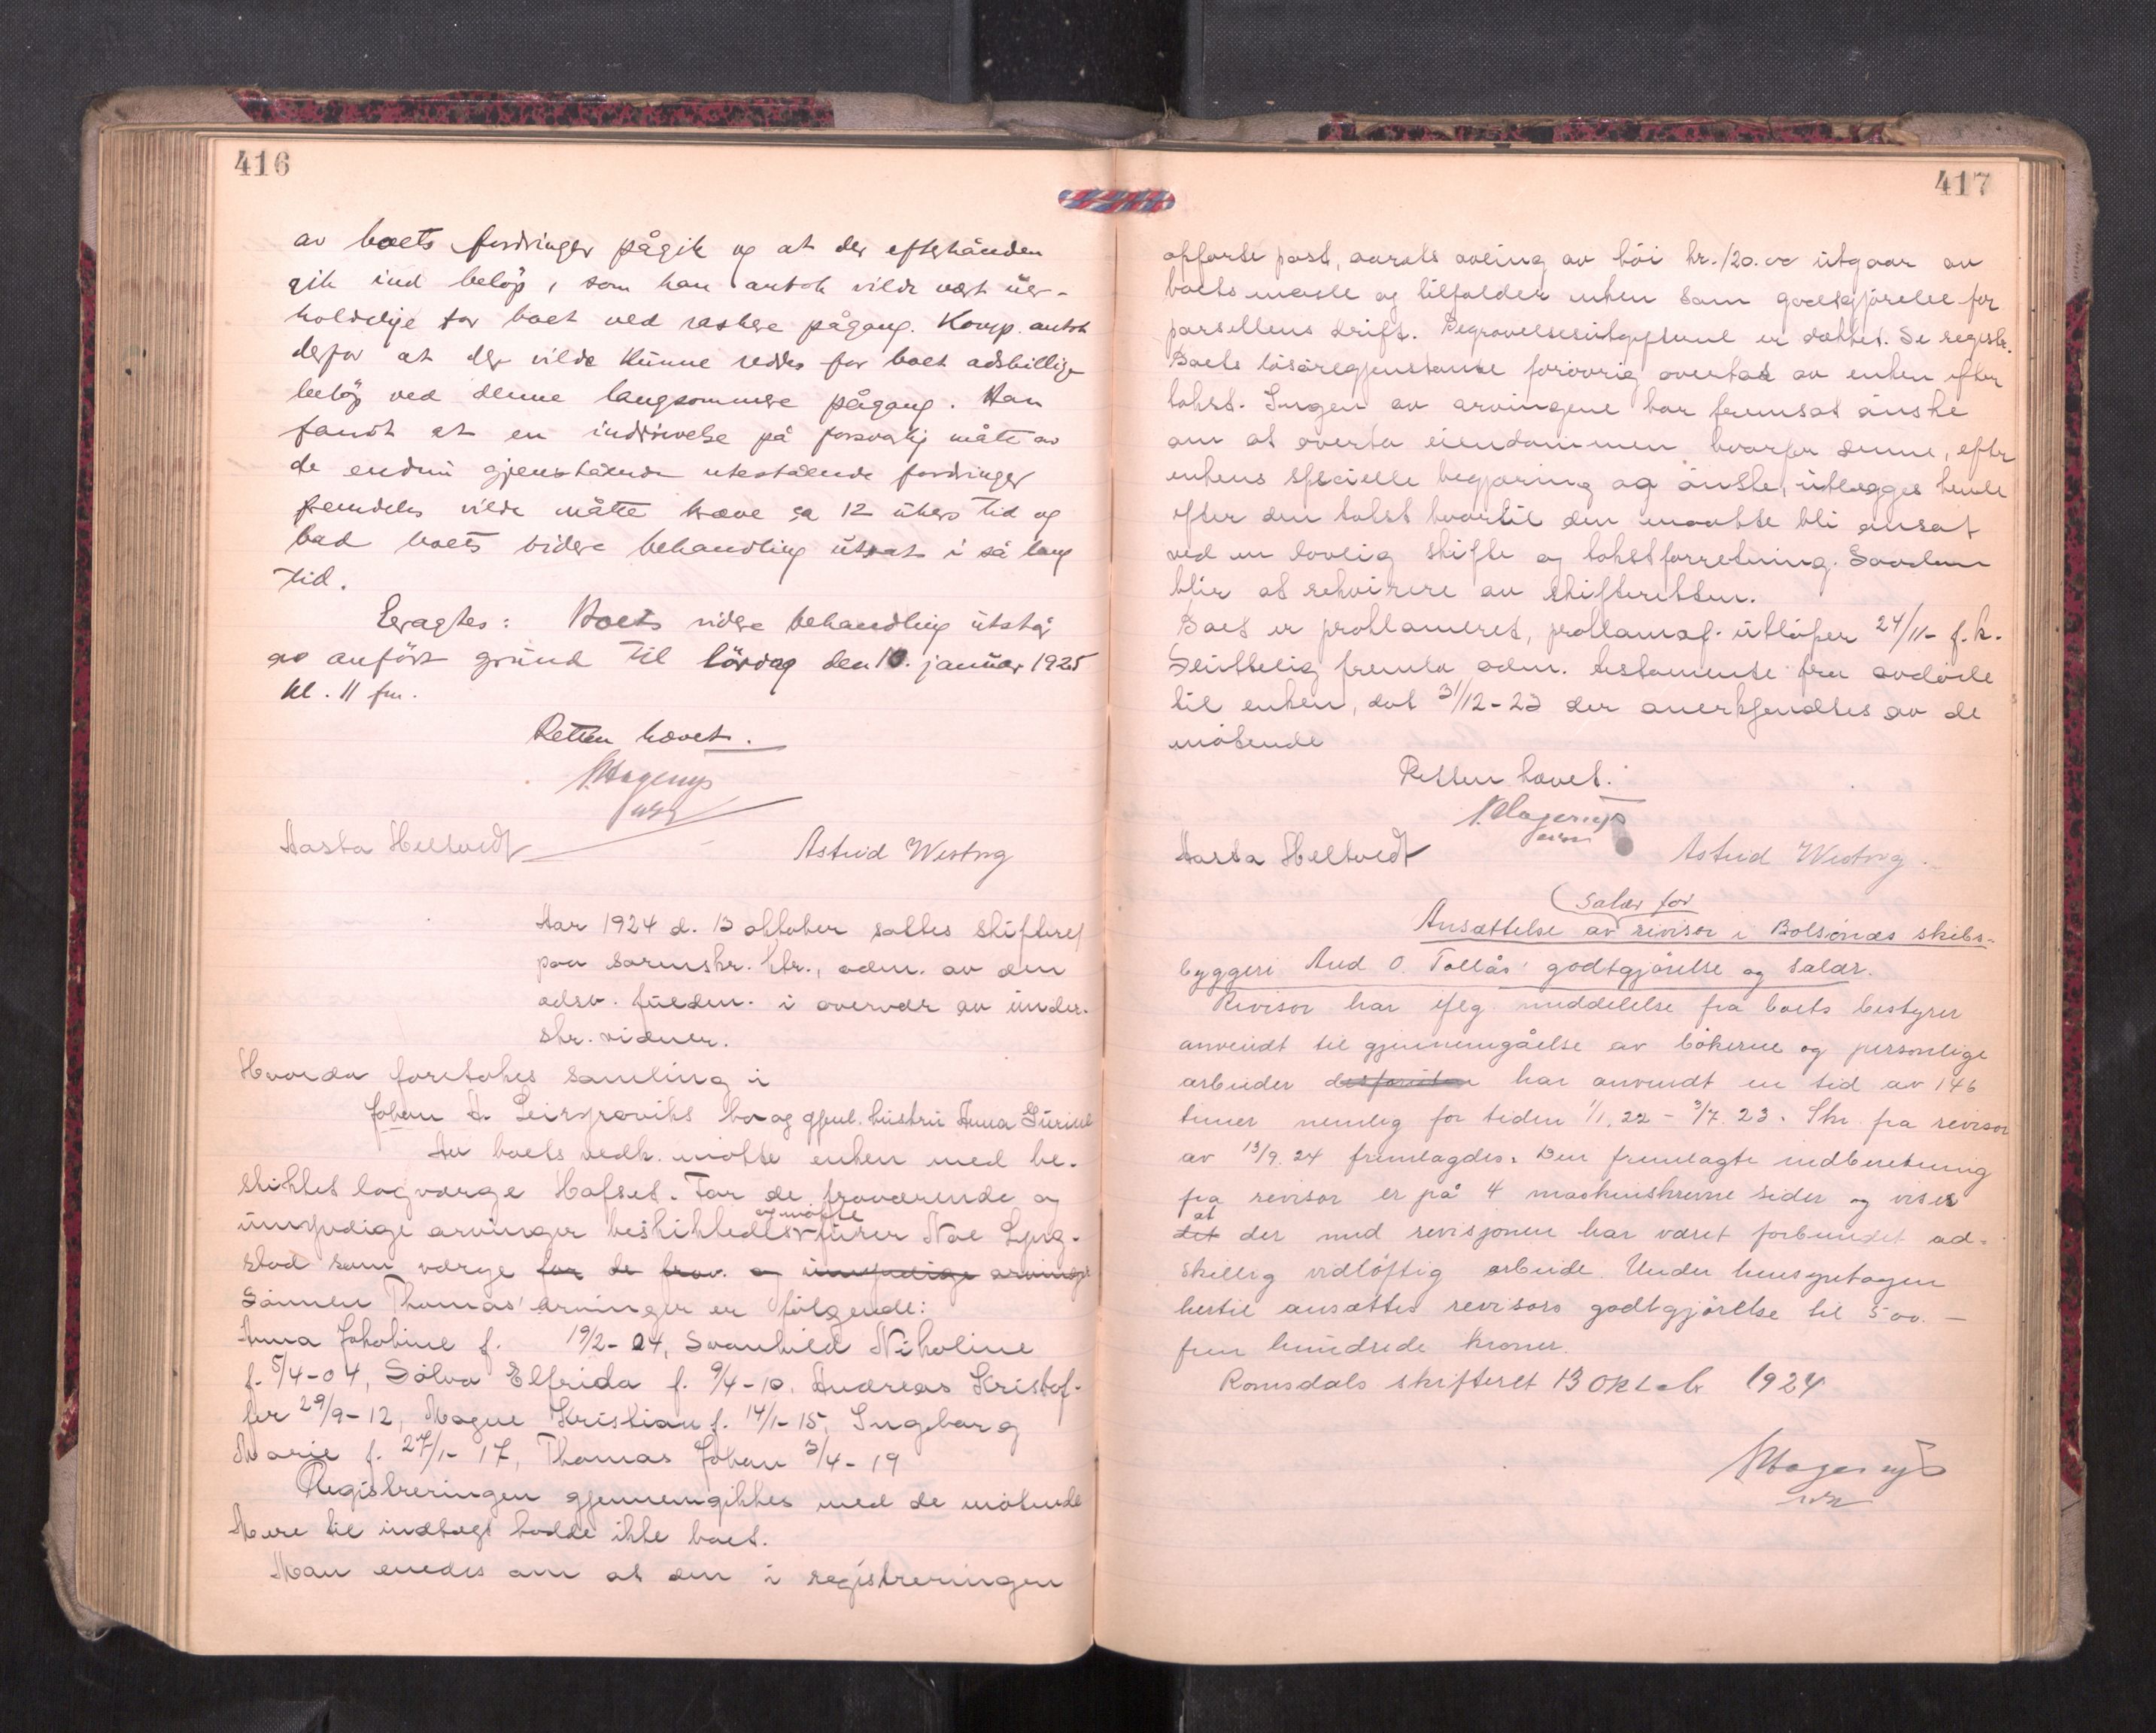 416
av boets fordringer pågik og at der efterhånden
gik ind beløp, som han antok vilde vært uer-
holdelige for boet ved raskere pågang. Komp. antok
derfor at der vilde kunne reddes for boet adskillige
beløp ved denne langsommere pågang. Han
fandt at en inddrivelse på forsvarlig måte av
de endnu gjenstående utestående fordringer
fremdeles vilde måtte kræve ca 12 ukers tid og
bad boets videre behandling utsat i så lang
tid.
Eragtes: Boets videre behandling utstår
av anført grund til lördag den 10. januar 1925
kl. 11 fm.
Retten hævet.
Hagerup
Aasta Heltvedt Astrid Westvig
Aar 1924 d. 13 oktober sattes skifteret
paa sorenskr. ktr., adm. av den
edsv. fuldm. i overvær av under-
skr. vidner.
Hvorda foretokes samling i
Johan A. Leirgroviks bo og gjenl. hustru Anna Gurine
Av boets vedk. mötte enken med be-
skikket lagværge Hafset. For de fraværende og
og mötte
umyndige arvinger beskikkedes furer Noe Lyng-
stad som værge for de frav. og umyndige arvinger
Sönnen Thomas' arvinger er fölgende:
Anna Jakobine f. 19/2-04, Svanhild Nikoline
f. 5/4-04, Solva Elfrida f. 9/4-10, Andreas Kristof-
fer 29/9-12, Magne Kristian f. 14/1-15, Ingeborg
Marie f. 27/1-17, Thomas Johan 3/4-19
Registreringen gjennemgikkes med de mötende
Mere til indtægt hadde ikke boet.
Man enedes om at den i registreringen
417
opførte post, aarets avling av höi kr. 120.00 utgaar av
boets masse og tilfalder enken som godtgjörelse for
parsellens drift. Begravelsesutgiftene er dækket. Se registr.
Boets lösöregjenstande forövrig overtas av enken efter
takst. Ingen av arvingene har fremsat önske
om at overta eiendommen hvorfor denne, efter
enkens specielle begjæring og önske, utlægges hende
efter den takst hvortil den maatte bli ansat
ved en lovlig skifte og takstforretning. Saadan
blir at rekvirere av skifteretten.
Boet er proklameret, proklamaf. utlöper 24/11- f. k.
Sluttelig fremla adm. testamente fra avdöde
til enken, dat 31/12-23 der anerkjendtes av de
mötende
Retten hævet.
Hagerup
Aasta Heltvedt Astrid Westvig.
salær for
Ansættelse av revisor i Bolsönæs skibs-
byggeri And O. Tollås' godtgjörelse og salær.
Revisor har iflg. meddelelse fra boets bestyrer
anvendt til gjennemgåelse av bökerne og personlige
arbeider desforuten har anvendt en tid av 146
timer nemlig for tiden 1/1.22 - 3/7.23. Skr. fra revisor
av 13/9.24 fremlagdes. Den fremlagte indberetning
fra revisor er på 4 maskinskrevne sider og viser
at
det der med revisjonen har været forbundet ad-
skillig vidlöftig arbeide. Under hensyntagen
hertil ansættes revisors godtgjörelse til 500.-
fem hundrede kroner.
Romsdals skifteret 13 Oktob. 1924
Hagerup